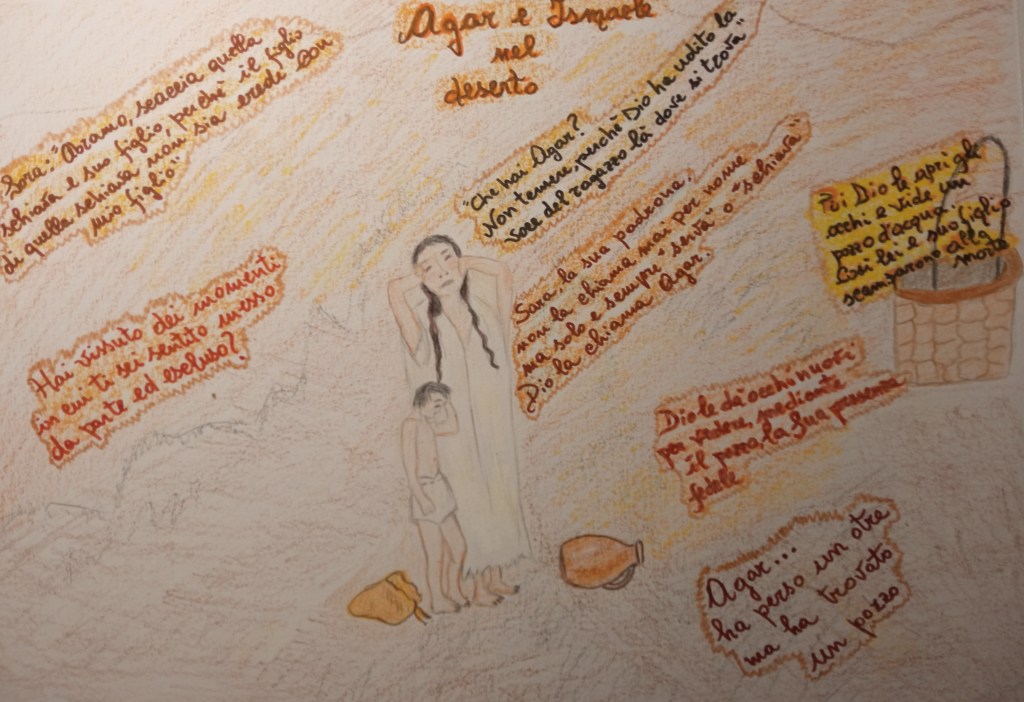 Agar e Ismaele
nel
deserto
Sara: "Abramo, scaccia quella
schiava e suo figlio, perchè il figlio
di quella schiava non sia erede con
mio figlio"
"Che hai Agar?
Non temere, perchè Dio ha udito la
voce del ragazzo là dove si trova"
Sara la sua padrona,
non la chiama mai per nome
ma solo e sempre "serva" o "schiava"
Dio la chiama Agar.
Poi Dio le aprì gli
occhi e vide un
pozzo d'acqua.
Così lei e suo figlio
scamparono alla
morte
Hai vissuto dei momenti
in cui ti sei sentito messo
da parte ed escluso?
Dio le dà occhi nuovi
per vedere, mediante
il pozzo, la Sua presenza
fedele
Agar...
ha perso un otre
ma ha trovato
un pozzo